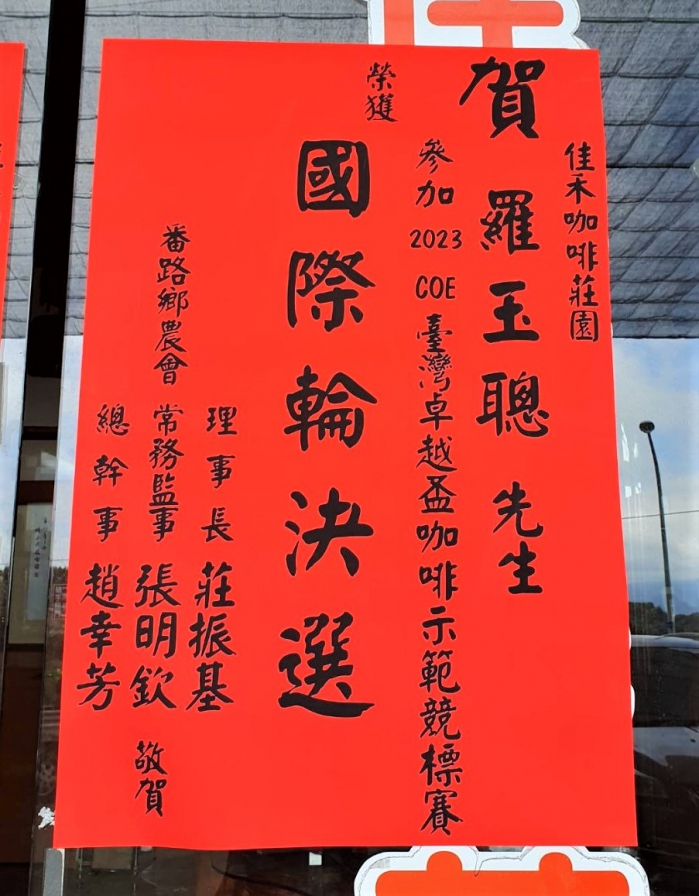 佳禾咖啡莊園
賀 羅玉聰 先生
參加 2023 COE 臺灣卓越盃咖啡示範競標賽
榮獲
國際輪決選
理事長 莊振基
番路鄉農會 常務監事 張明欽 敬賀
總幹事 趙幸芳